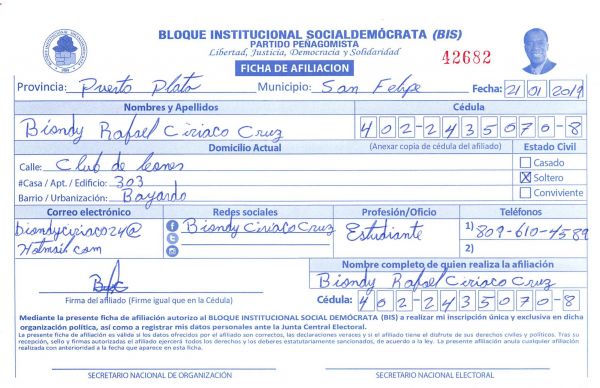 BLOQUE INSTITUCIONAL SOCIALDEMÓCRATA (BIS)
PARTIDO PEÑAGOMISTA
Libertad, Justicia, Democracia y Solidaridad
42682
FICHA DE AFILIACION
Provincia: Puerto Plata Municipio: San Felipe Fecha: 21 01 2019
Nombres y Apellidos Cédula
Biondy Rafael Ciriaco Cruz 402-2435070-8
Domicilio Actual (Anexar copia de cédula del afiliado) Estado Civil
Calle: Club de leones Casado
#Casa / Apt. / Edificio: 303 X Soltero
Barrio / Urbanización: Bayardo Conviviente
Correo electrónico Redes sociales Profesión/Oficio Teléfonos
biondyciriaco24@ Biondy Ciriaco Cruz Estudiante 1) 809-610-4589
Hotmail.com 2)
Nombre completo de quien realiza la afiliación
Biondy Rafael Ciriaco Cruz
Firma del afiliado (Firme igual que en la Cédula) Cédula: 402-2435070-8
Mediante la presente ficha de afiliación autorizo al BLOQUE INSTITUCIONAL SOCIAL DEMÓCRATA (BIS) a realizar mi inscripción única y exclusiva en dicha
organización política, así como a registrar mis datos personales ante la Junta Central Electoral.
La presente ficha de afiliación es válida si los datos ofrecidos por el afiliado son correctos, las declaraciones veraces y si el afiliado tiene el disfrute de sus derechos civiles y políticos. Tras su
recepción, sello y firmas autorizadas el afiliado ejercerá todos los derechos y los deberes estatutariamente sancionados, de acuerdo a la ley. La presente afiliación anula cualquier afiliación
realizada con anterioridad a la fecha que aparece en esta ficha.
SECRETARIO NACIONAL DE ORGANIZACIÓN SECRETARIO NACIONAL ELECTORAL